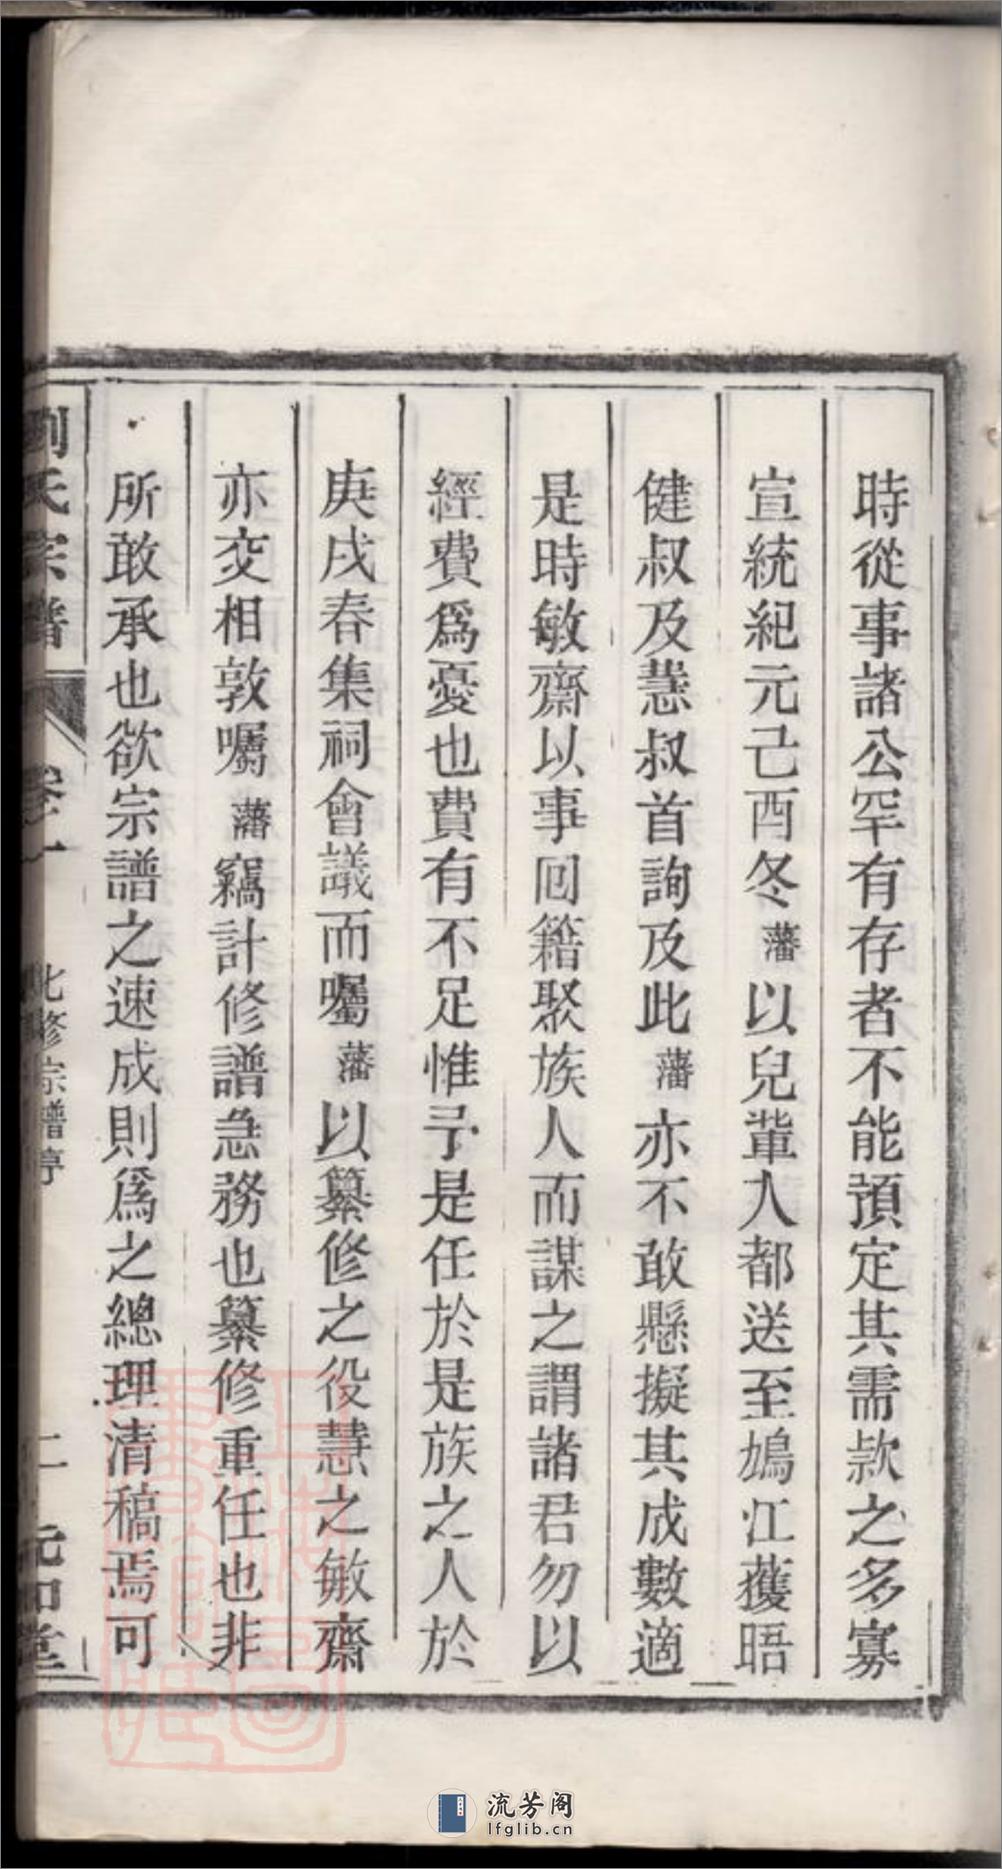 時從事諸公罕有存者不能預定其需款之多寡
宣統紀元己酉冬藩以兒軰人都送至鳩江蒦晤
健叔及慧叔首詢及此藩亦不敢懸擬其成數適
是時敏齋以事囘籍聚族人而謀之謂諸君勿以
經費爲憂也費有不足惟予是任於是族之人於
庚戌春集祠會議而囑藩以纂修之役慧之敏齋
亦交相敦囑藩竊計修譜急務也纂修重任也非
所敢承也欲宗譜之速成則爲之總理清稿焉可
劉氏宗譜
卷一
修宗譜序
二
元和堂
流芳阁
lfglib.cn